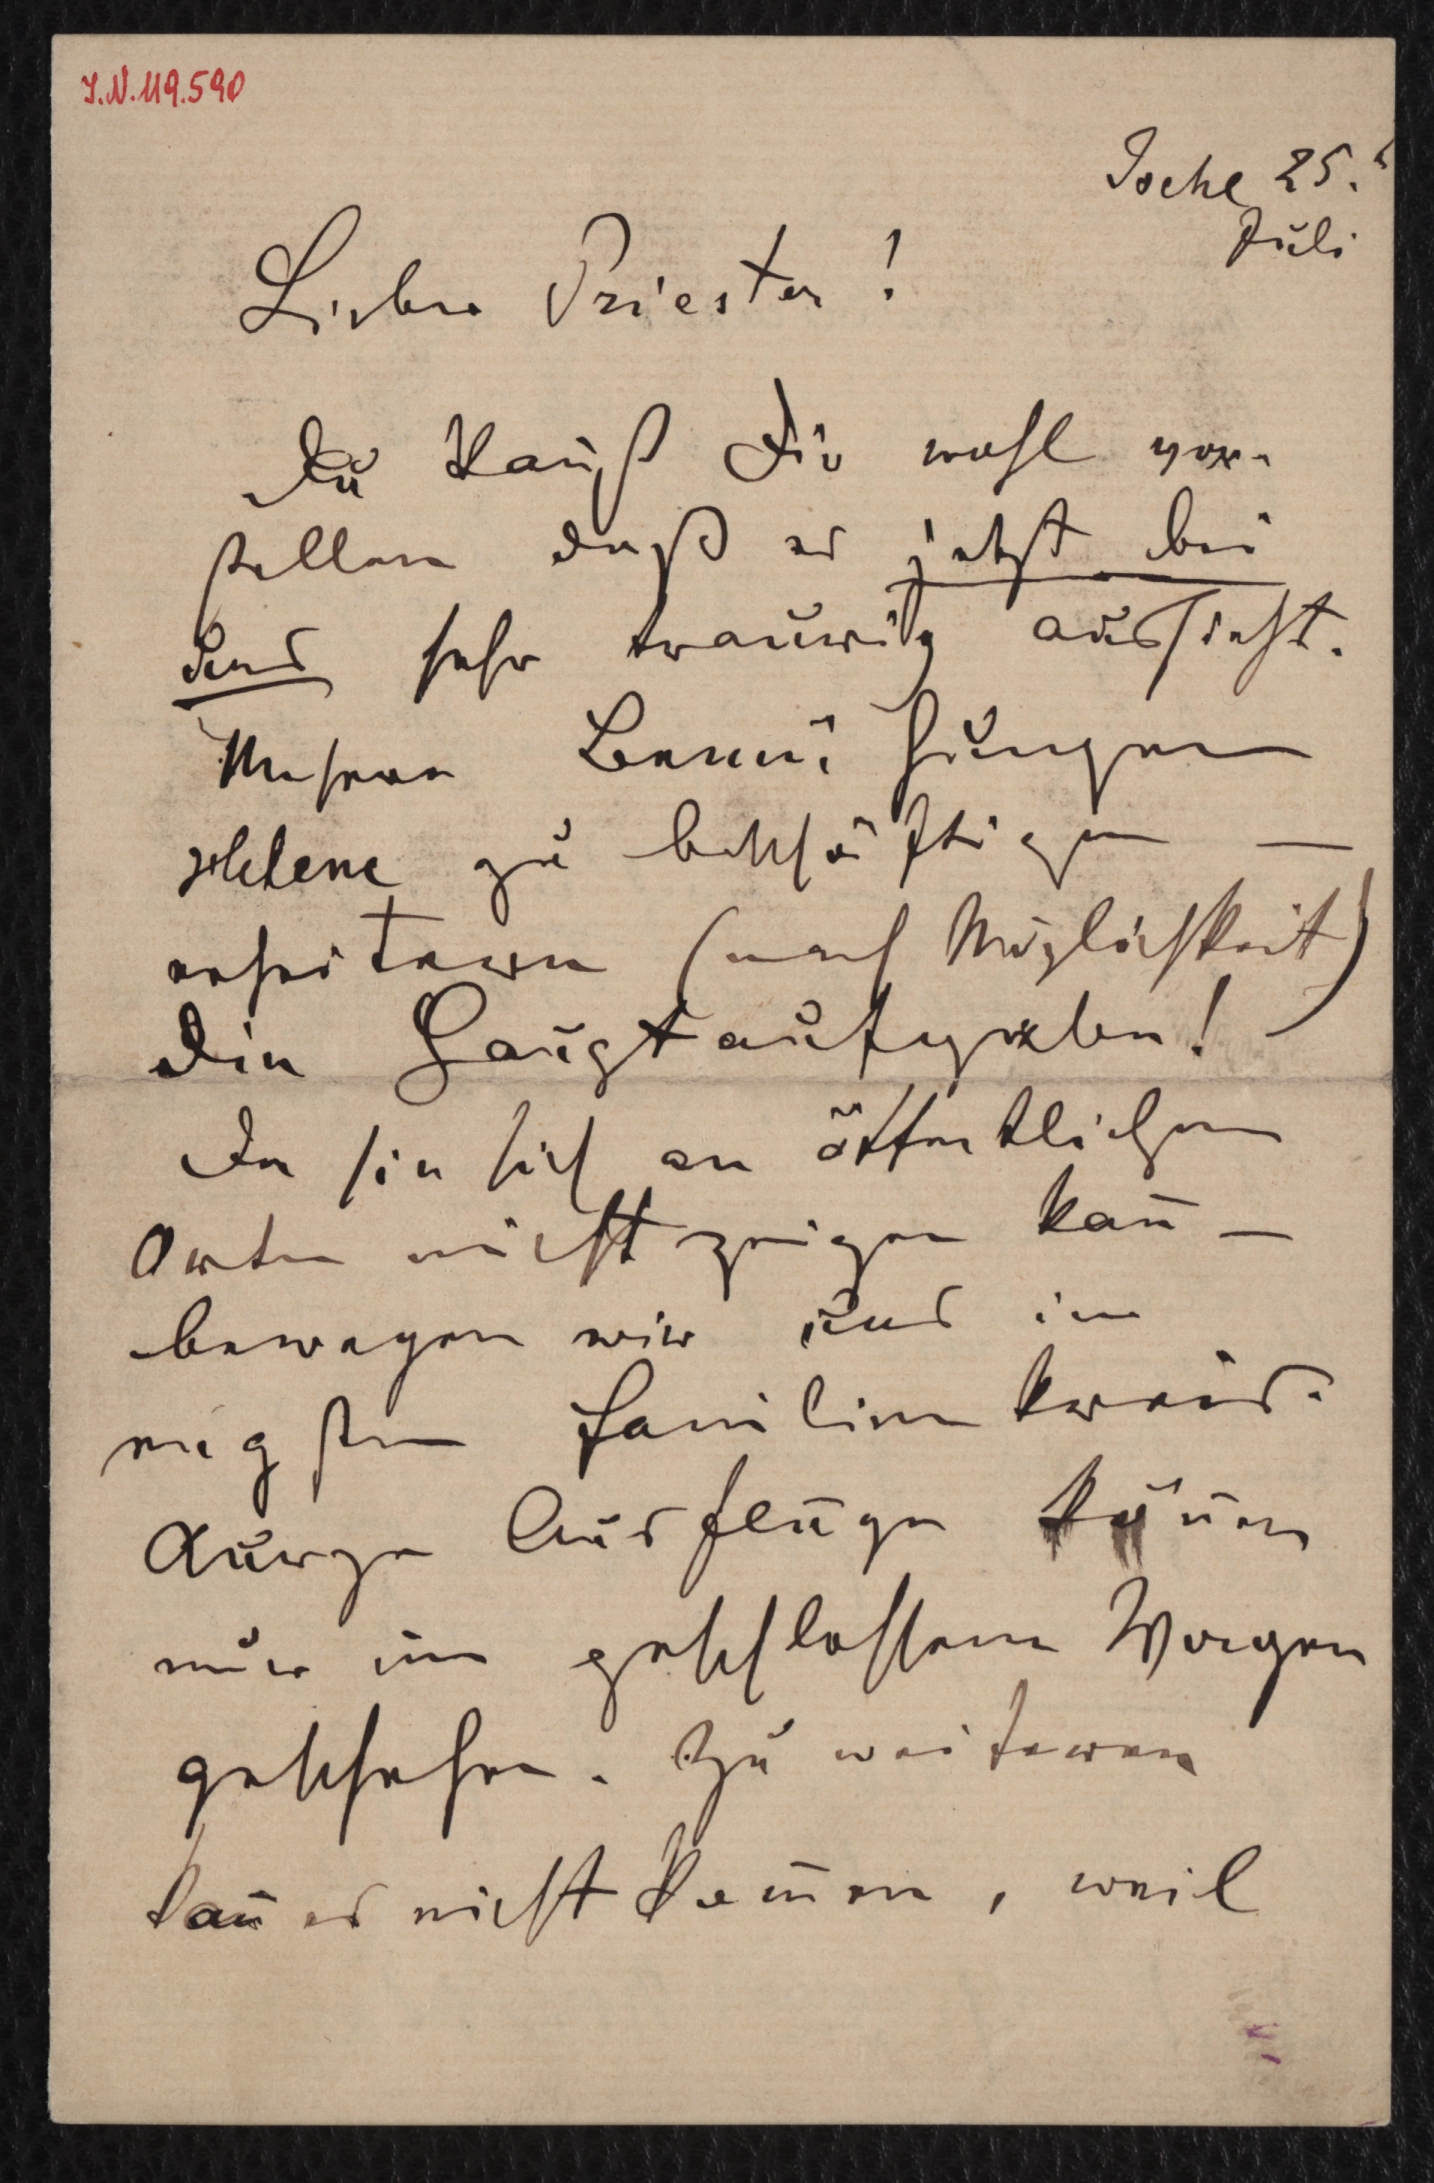 I.N. 119.590
Ischl 25.t
Juli
Lieber Priester!
Du kan̄st Dir wohl vor-
stellen daß es jetzt bei
uns sehr traurig aussieht.
Unsere Bemühungen
Helene zu beschäftigen —
erheitern (nach Möglichkeit)
die Hauptaufgaben!
Da sie sich an öffentlichen
Orten nicht zeigen kan̄ —
bewegen wir uns im
engsten Familienkreis.
Kurze Ausflüge kön̄en
nur im geschlossenen Wagen
geschehen. Zu weiteren
kan̄ es nicht kom̄en, weil